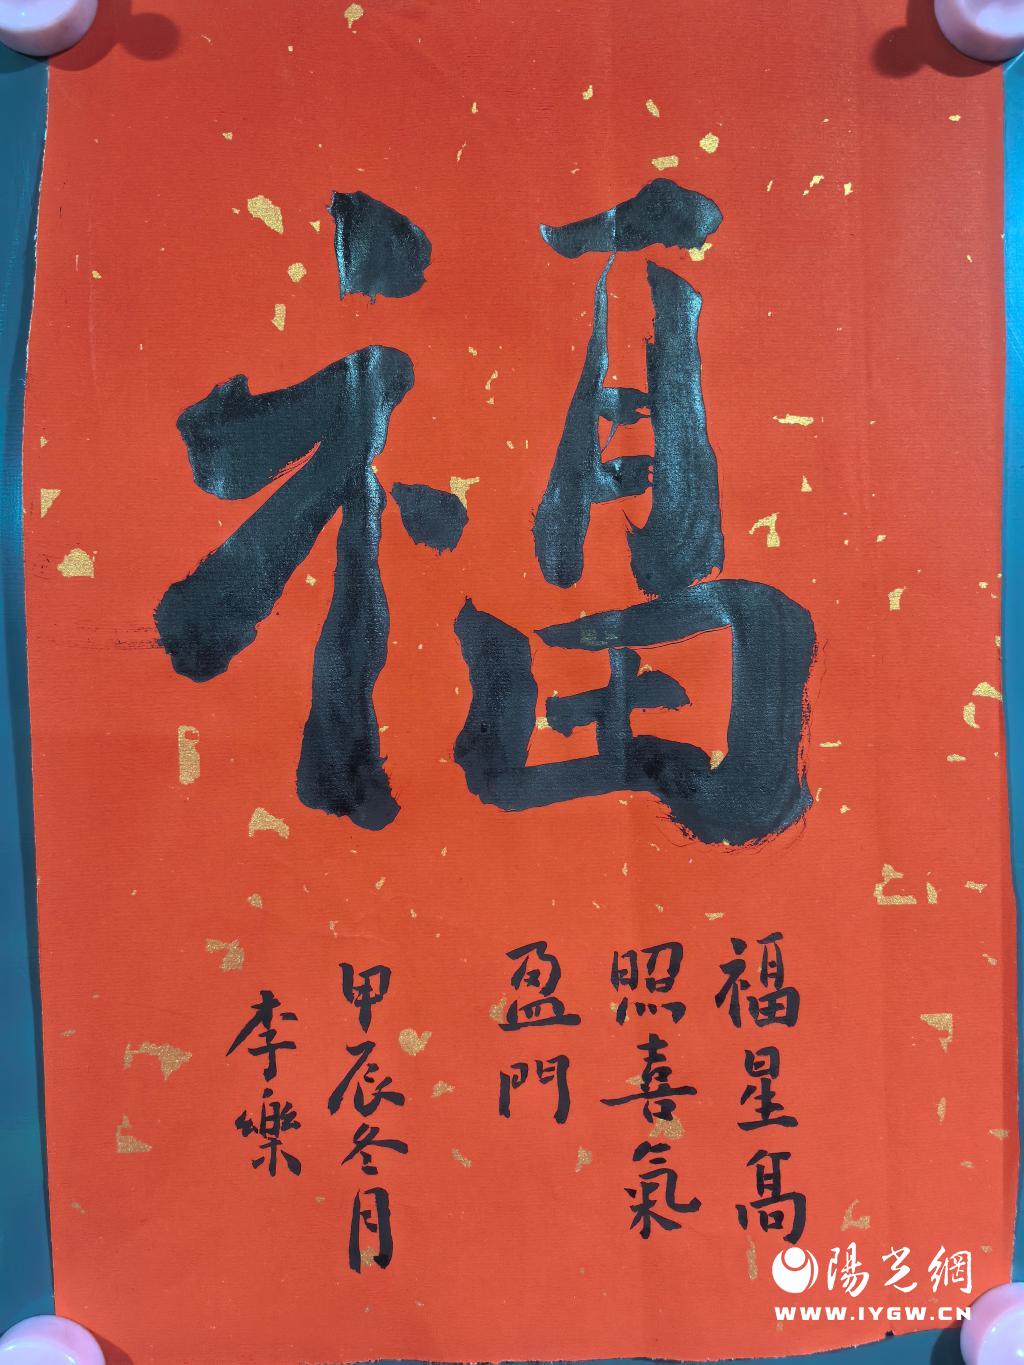 福
福星高
照喜氣
盈門
甲辰冬月
李樂
陽光網
WWW.IYGW.CN